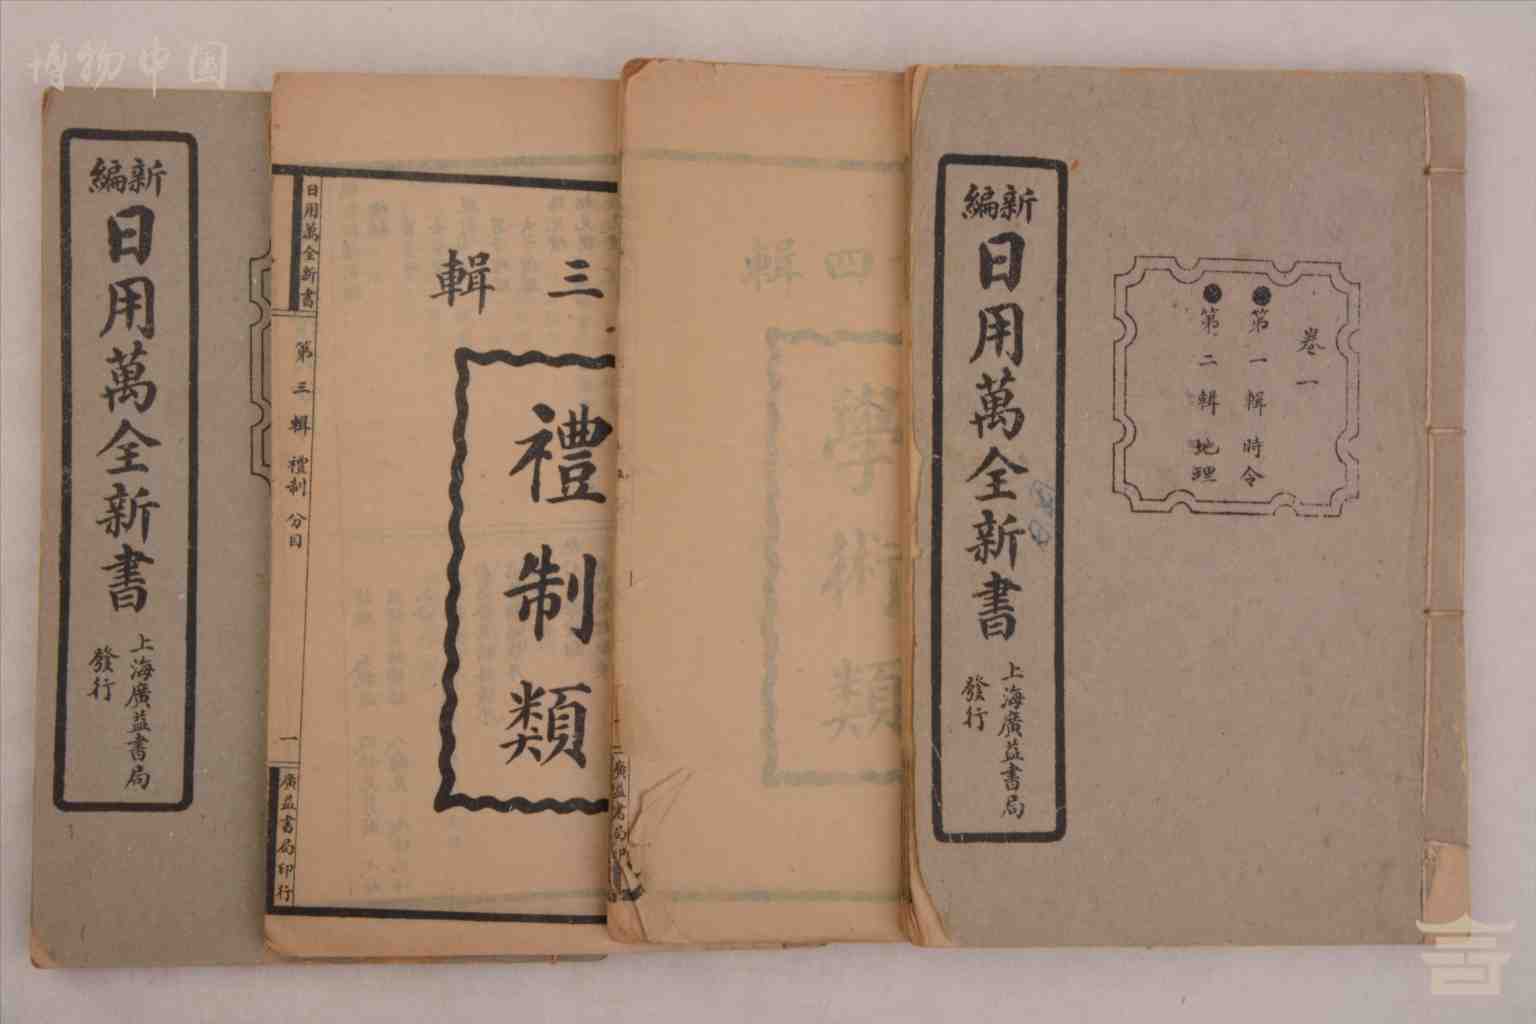 博物中国
新編
日用萬全新書
上海廣益書局
發行
日用萬全新書
第三輯 禮制 分目
一
廣益書局印行
三輯
禮制類
四輯
學術類
廣益書局印
新編
日用萬全新書
上海廣益書局
發行
卷一
●第一輯時令
●第二輯地理